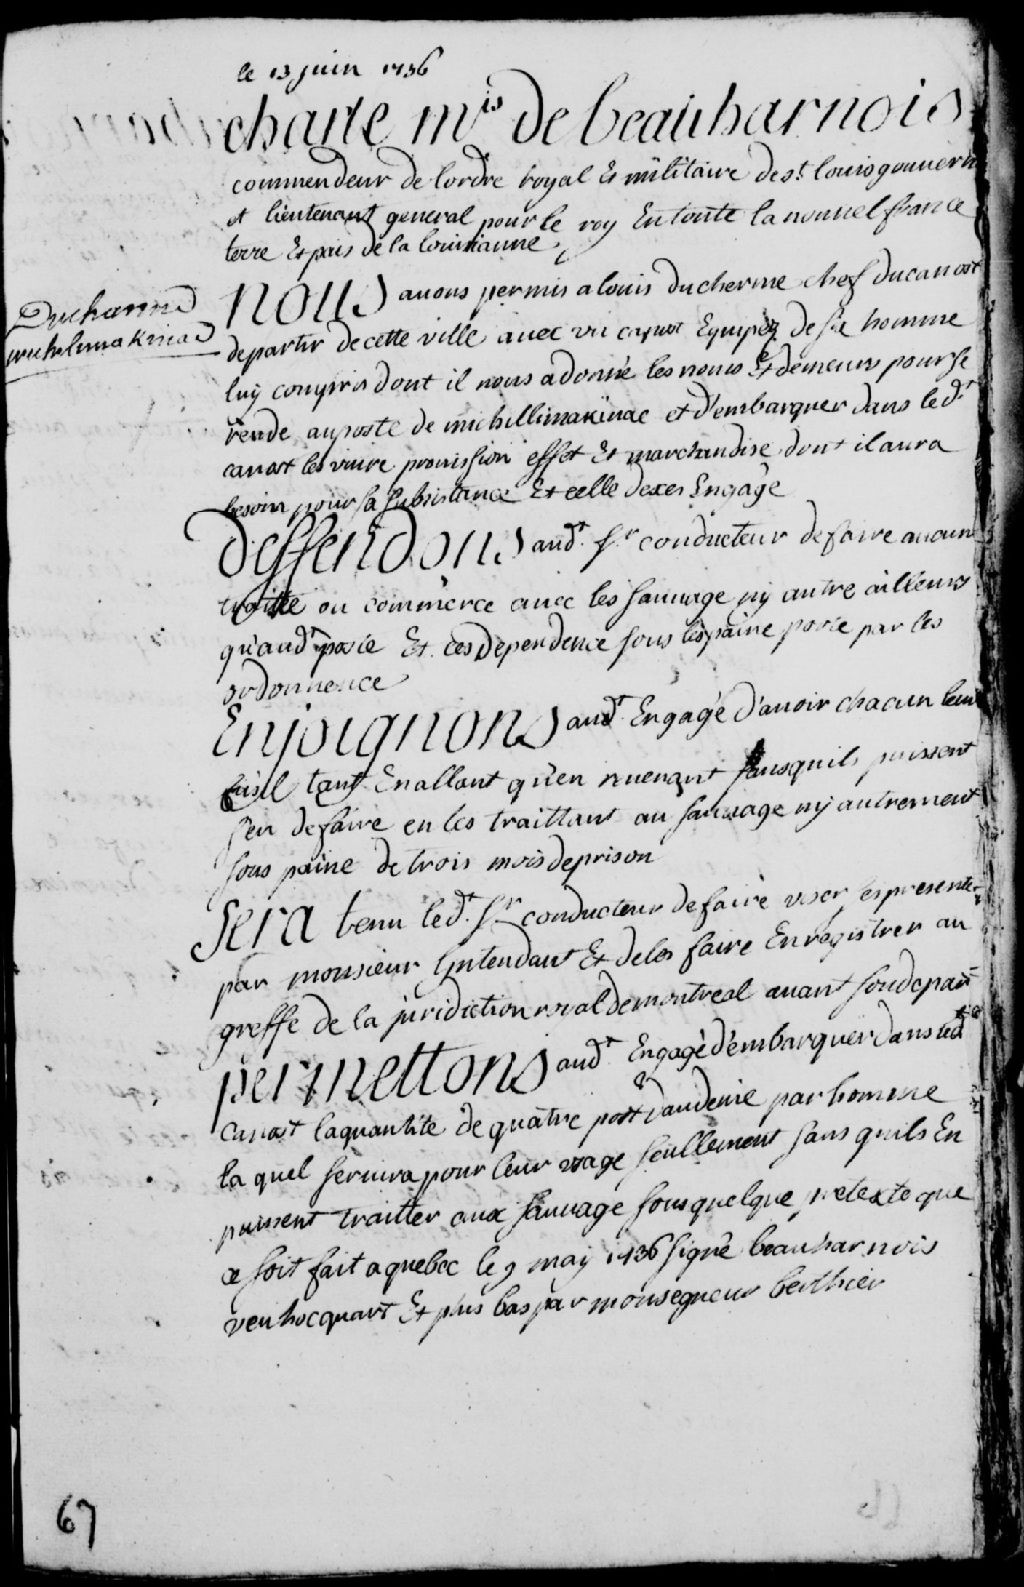 le 13 juin 1736
charle mis de beauharnois
commendeur de lordre royal Et militaire de st. louis gouvern
et lieutenant general pour le roy En toute la nouvel france
terre Et païs de la louisianne
Ducharme
michilimakinac
nous avons permis a louis ducherme chef du canost
de partir de cette ville avec un canost Equipez de six homme
luy compris dont il nous a donné les noms Et demeure pour se
rende au poste de michillimakinac et d'embarquer dans led.t
canost les vivre provission effet Et marchandise dont il aura
besoin pour sa subsistance Et celle de ces Engagé
deffendons aud.t s.r conducteur de faire aucune
traitte ou commerce avec les sauvage ny autre ailleurs
qu'aud.t poste Et ces dependence sous les paine porté par les
ordonnence
Enjoignons aud.t Engagé d'avoir chacun leur
fusil tant En allant qu'en revenant sans quils puissent
s'en defaire en les traittant au sauvage ny autrement
sous paine de trois mois de prison
sera tenu led.t s.r conducteur de faire viser les presente
par monsieur Lyntendant Et de les faire Enregistrer au
greffe de la juridiction roial de montreal avant son depart
permettons aud.t Engagé d'embarquer dans led.t
canost la quantité de quatre post d'audevie par homme
la quel servira pour leur usage seullement sans quils En
puissent traitter aux sauvage sous quelque pretexte que
ce soit fait a quebec le 9 may 1736 signé beauharnois
veu hocquart Et plus bas par monsegneur berthier
67